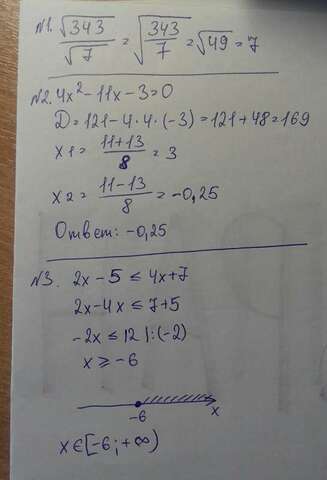 №1. √343/√7 = √(343/7) = √49 = 7
№2. 4x² - 11x - 3 = 0
D = 121 - 4·4·(-3) = 121 + 48 = 169
x1 = (11+13)/8 = 3
x2 = (11-13)/8 = -0,25
Ответ: -0,25
№3. 2x - 5 ≤ 4x + 7
2x - 4x ≤ 7 + 5
-2x ≤ 12 |:(-2)
x ≥ -6
-6 x
x ∈ [-6; +∞)